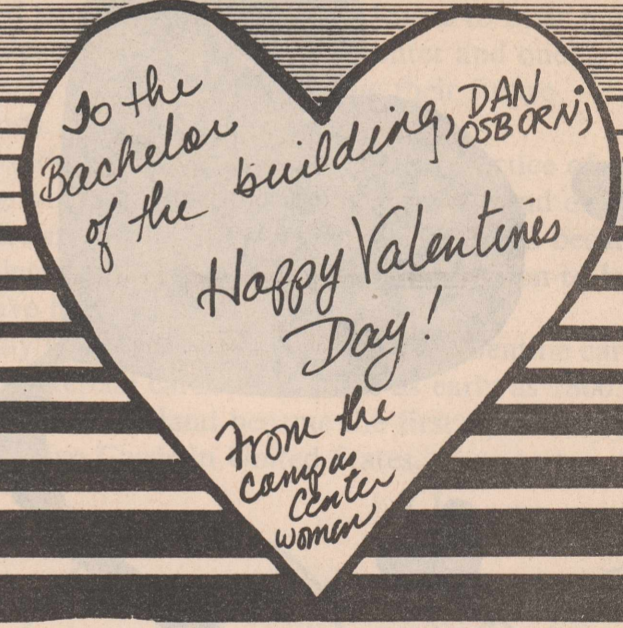 To the
Bachelor
of the building, DAN
OSBORN;
Happy Valentines
Day!
From the
campus
center
women